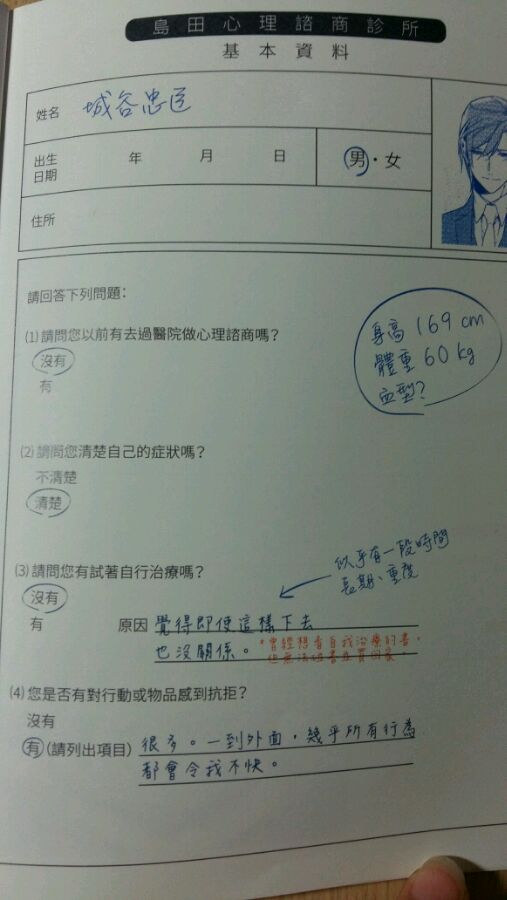 島田心理諮商診所
基本資料
姓名 城谷忠臣
出生日期 年 月 日 男・女
住所
請回答下列問題：
(1) 請問您以前有去過醫院做心理諮商嗎？
沒有
有
身高 169 cm
體重 60 kg
血型？
(2) 請問您清楚自己的症狀嗎？
不清楚
清楚
(3) 請問您有試著自行治療嗎？
沒有
有
似乎有一段時間
長期、重度
原因 覺得即使這樣下去
也沒關係。
*曾經想看自我治療的書，
但無法把書店買回家。
(4) 您是否有對行動或物品感到抗拒？
沒有
有 (請列出項目) 很多。一到外面，幾乎所有行為
都會令我不快。